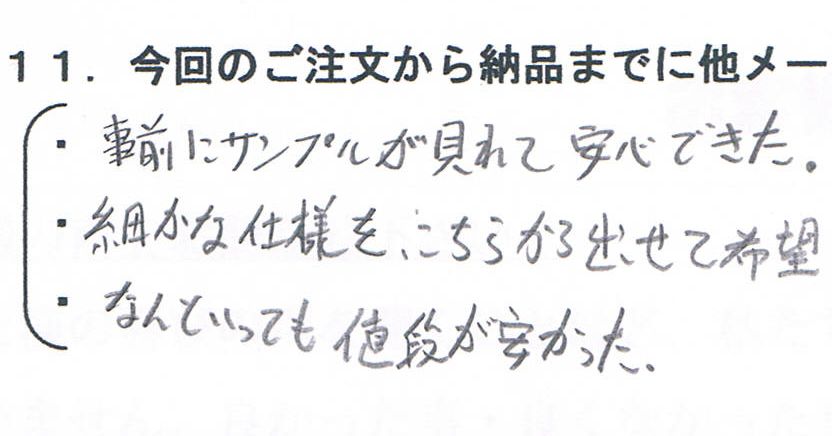 11. 今回のご注文から納品までに他メー
・事前にサンプルが見れて安心できた。
・細かな仕様をこちらから出せて希望
・なんといっても値段が安かった。